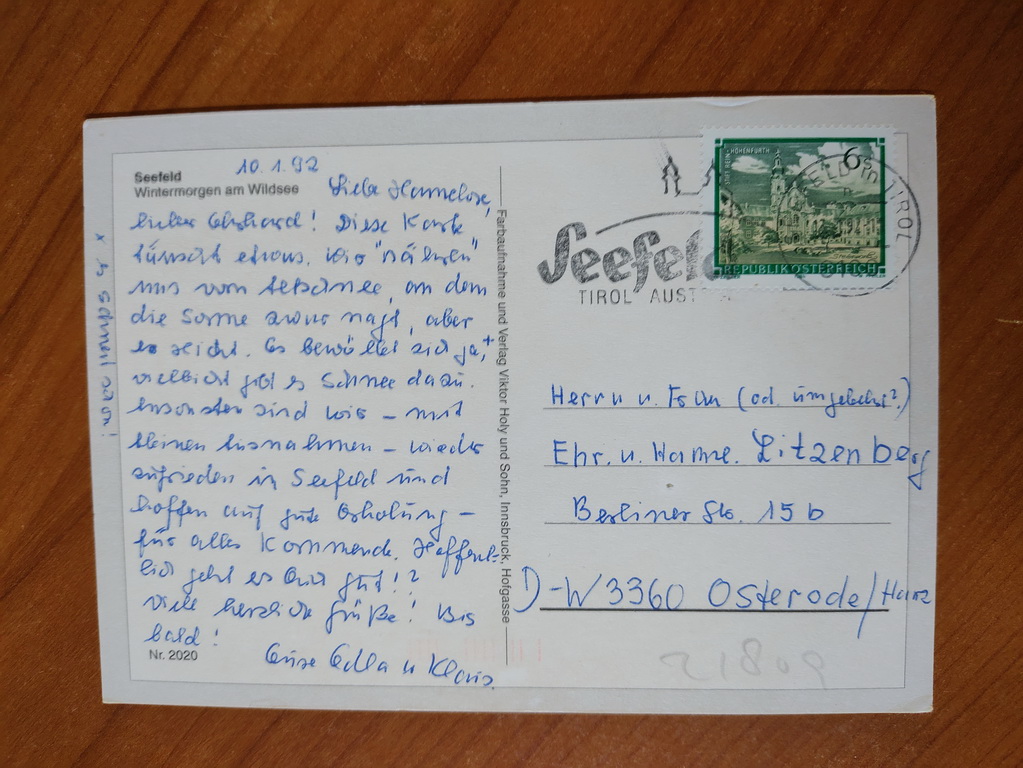 Seefeld
Wintermorgen am Wildsee
10.1.92
Liebe Hannelore,
lieber Ehrhard! Diese Karte
täuscht etwas. Wir "nähren"
uns vom Altschnee, an dem
die Sonne zwar nagt, aber
es reicht. Es bewölkt sich ja, +
vielleicht gibt es Schnee dazu.
Ansonsten sind wir – mit
kleinen Ausnahmen – wieder
zufrieden in Seefeld und
hoffen auf gute Erholung –
für alles Kommende. Hoffent-
lich geht es Euch gut!?
Viele herzliche Grüße! Bis
bald!
Eure Edla u Klaus.
x es schneit schon!
Nr. 2020
Farbaufnahme und Verlag Viktor Holy und Sohn, Innsbruck, Hofgasse
Seefeld
TIROL AUST
STIFT REIN-HOHENFURTH
6
REPUBLIK ÖSTERREICH
TIROL
Herrn u. Frau (od. umgekehrt?)
Ehr. u. Hanne. Litzenberg
Berliner Str. 15 b
D-W 3360 Osterode/Harz
21809